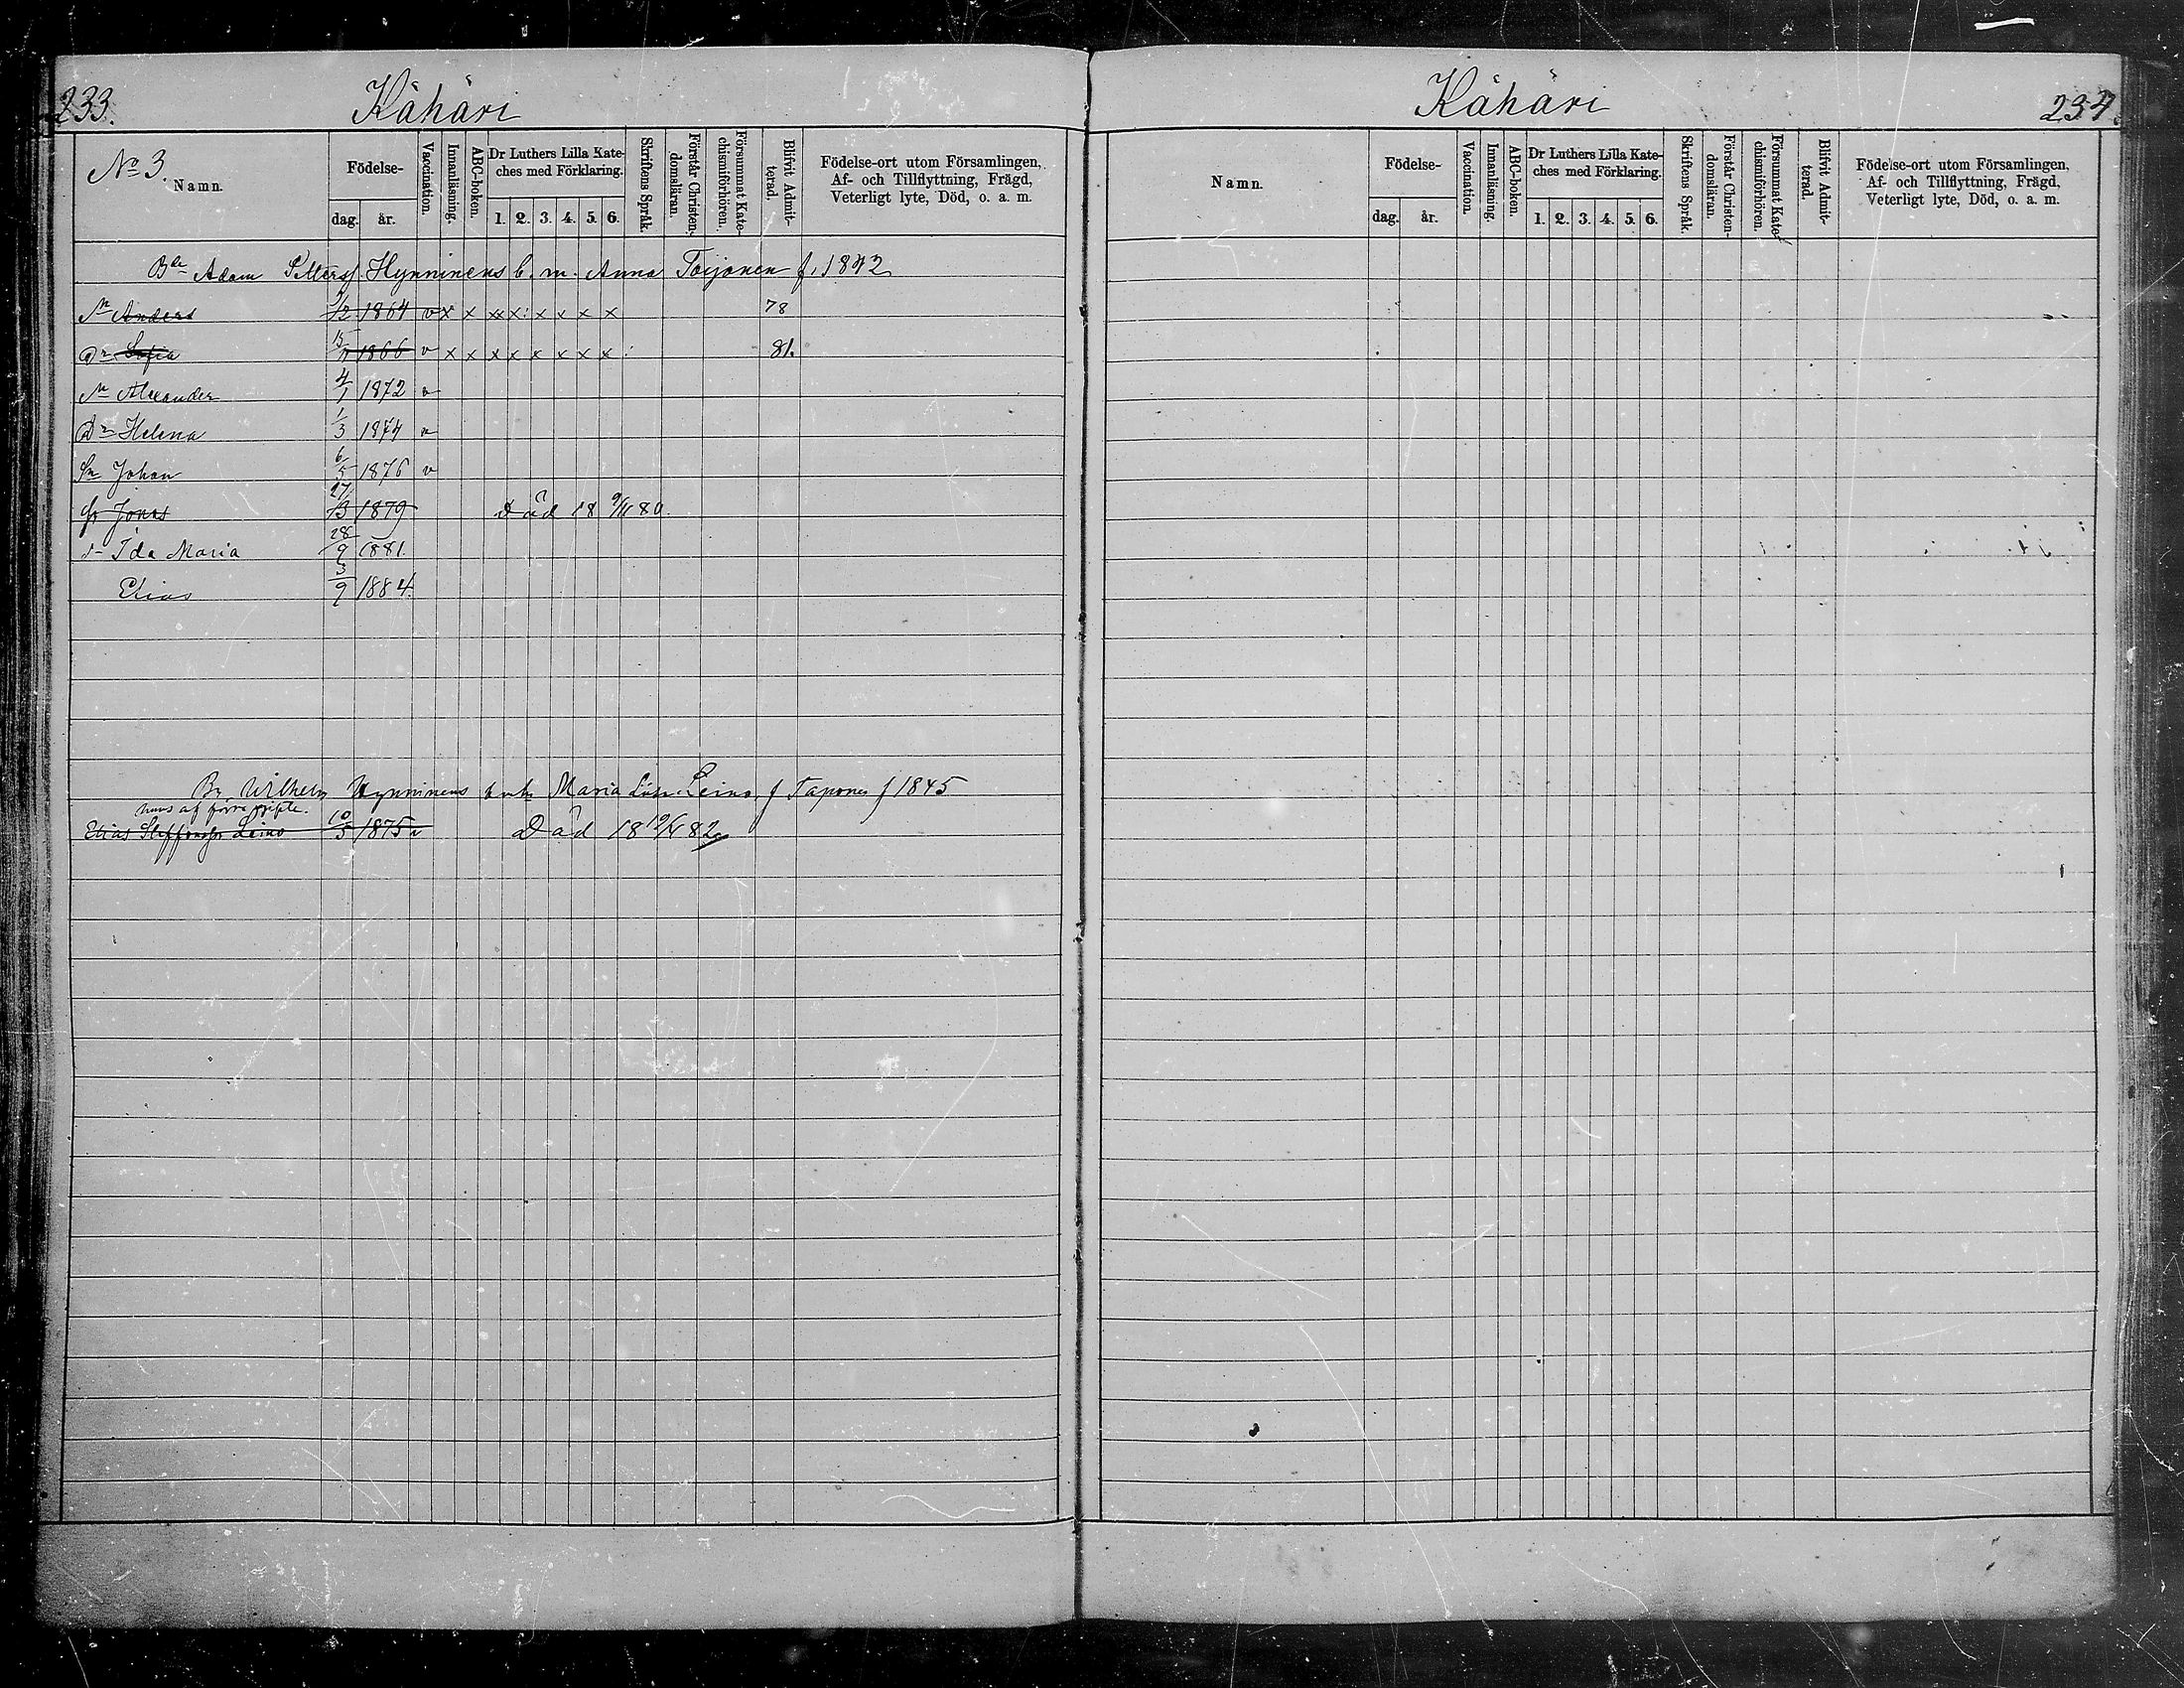 233.
Kähäri
No 3.
Namn.
Födelse-
dag.
år.
Vaccination.
Innanläsning.
ABC-boken.
Dr Luthers Lilla Kate-
ches med Förklaring.
1. 2. 3. 4. 5. 6.
Skriftens Språk.
Förstår Christen-
domsläran.
Försummat Kate-
chismiförhören.
Blifvit Admit-
terad.
Födelse-ort utom Församlingen,
Af- och Tillflyttning, Frägd,
Veterligt lyte, Död, o. a. m.
Adam Hynninens b. m. Anna Toijonen f. 1842
Anders 1864 v x x xx x: x x x x 78
Dr Sofia 1866 v x x x x x x x x : 81.
Alexander 4/1 1872 v
Dr Helena 1/3 1874 v
Sn Johan 6/5 1876 v
Jonas 27/3 1879 Död 18 9/11 80
Ida Maria 28/9 1881.
Elias 3/9 1884.
Wilhelm Hynninens Maria Leino f Taponen f 1845
hans af förra gifte.
Elias Leino 10/5 1875 v Död 18 82
Kähäri
234.
Namn.
Födelse-
dag.
år.
Vaccination.
Innanläsning.
ABC-boken.
Dr Luthers Lilla Kate-
ches med Förklaring.
1. 2. 3. 4. 5. 6.
Skriftens Språk.
Förstår Christen-
domsläran.
Försummat Kate-
chismiförhören.
Blifvit Admit-
terad.
Födelse-ort utom Församlingen,
Af- och Tillflyttning, Frägd,
Veterligt lyte, Död, o. a. m.